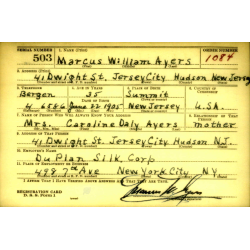 SERIAL NUMBER 1. NAME (Print) ORDER NUMBER
503 Marcus William Ayers 1084
2. ADDRESS (Print)
41 Dwight St. Jersey City Hudson New Jersey
3. TELEPHONE 4. AGE IN YEARS 5. PLACE OF BIRTH 6. COUNTRY OF CITIZENSHIP
Bergen 35 Summit
4 6586 June 22 1905 New Jersey U.S.A.
7. NAME OF PERSON WHO WILL ALWAYS KNOW YOUR ADDRESS 8. RELATIONSHIP OF THAT PERSON
Mrs. Caroline Daly Ayers mother
9. ADDRESS OF THAT PERSON
41 Dwight St. Jersey City Hudson N.J.
10. EMPLOYER'S NAME
Du Plan Silk Corp
11. PLACE OF EMPLOYMENT OR BUSINESS
7th Ave New York City NY
I AFFIRM THAT I HAVE VERIFIED ABOVE ANSWERS AND THAT THEY ARE TRUE.
REGISTRATION CARD
D. S. S. Form 1